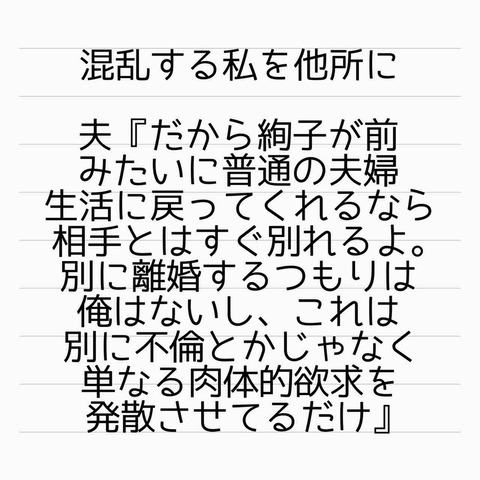 混乱する私を他所に
夫『だから絢子が前
みたいに普通の夫婦
生活に戻ってくれるなら
相手とはすぐ別れるよ。
別に離婚するつもりは
俺はないし、これは
別に不倫とかじゃなく
単なる肉体的欲求を
発散させてるだけ』